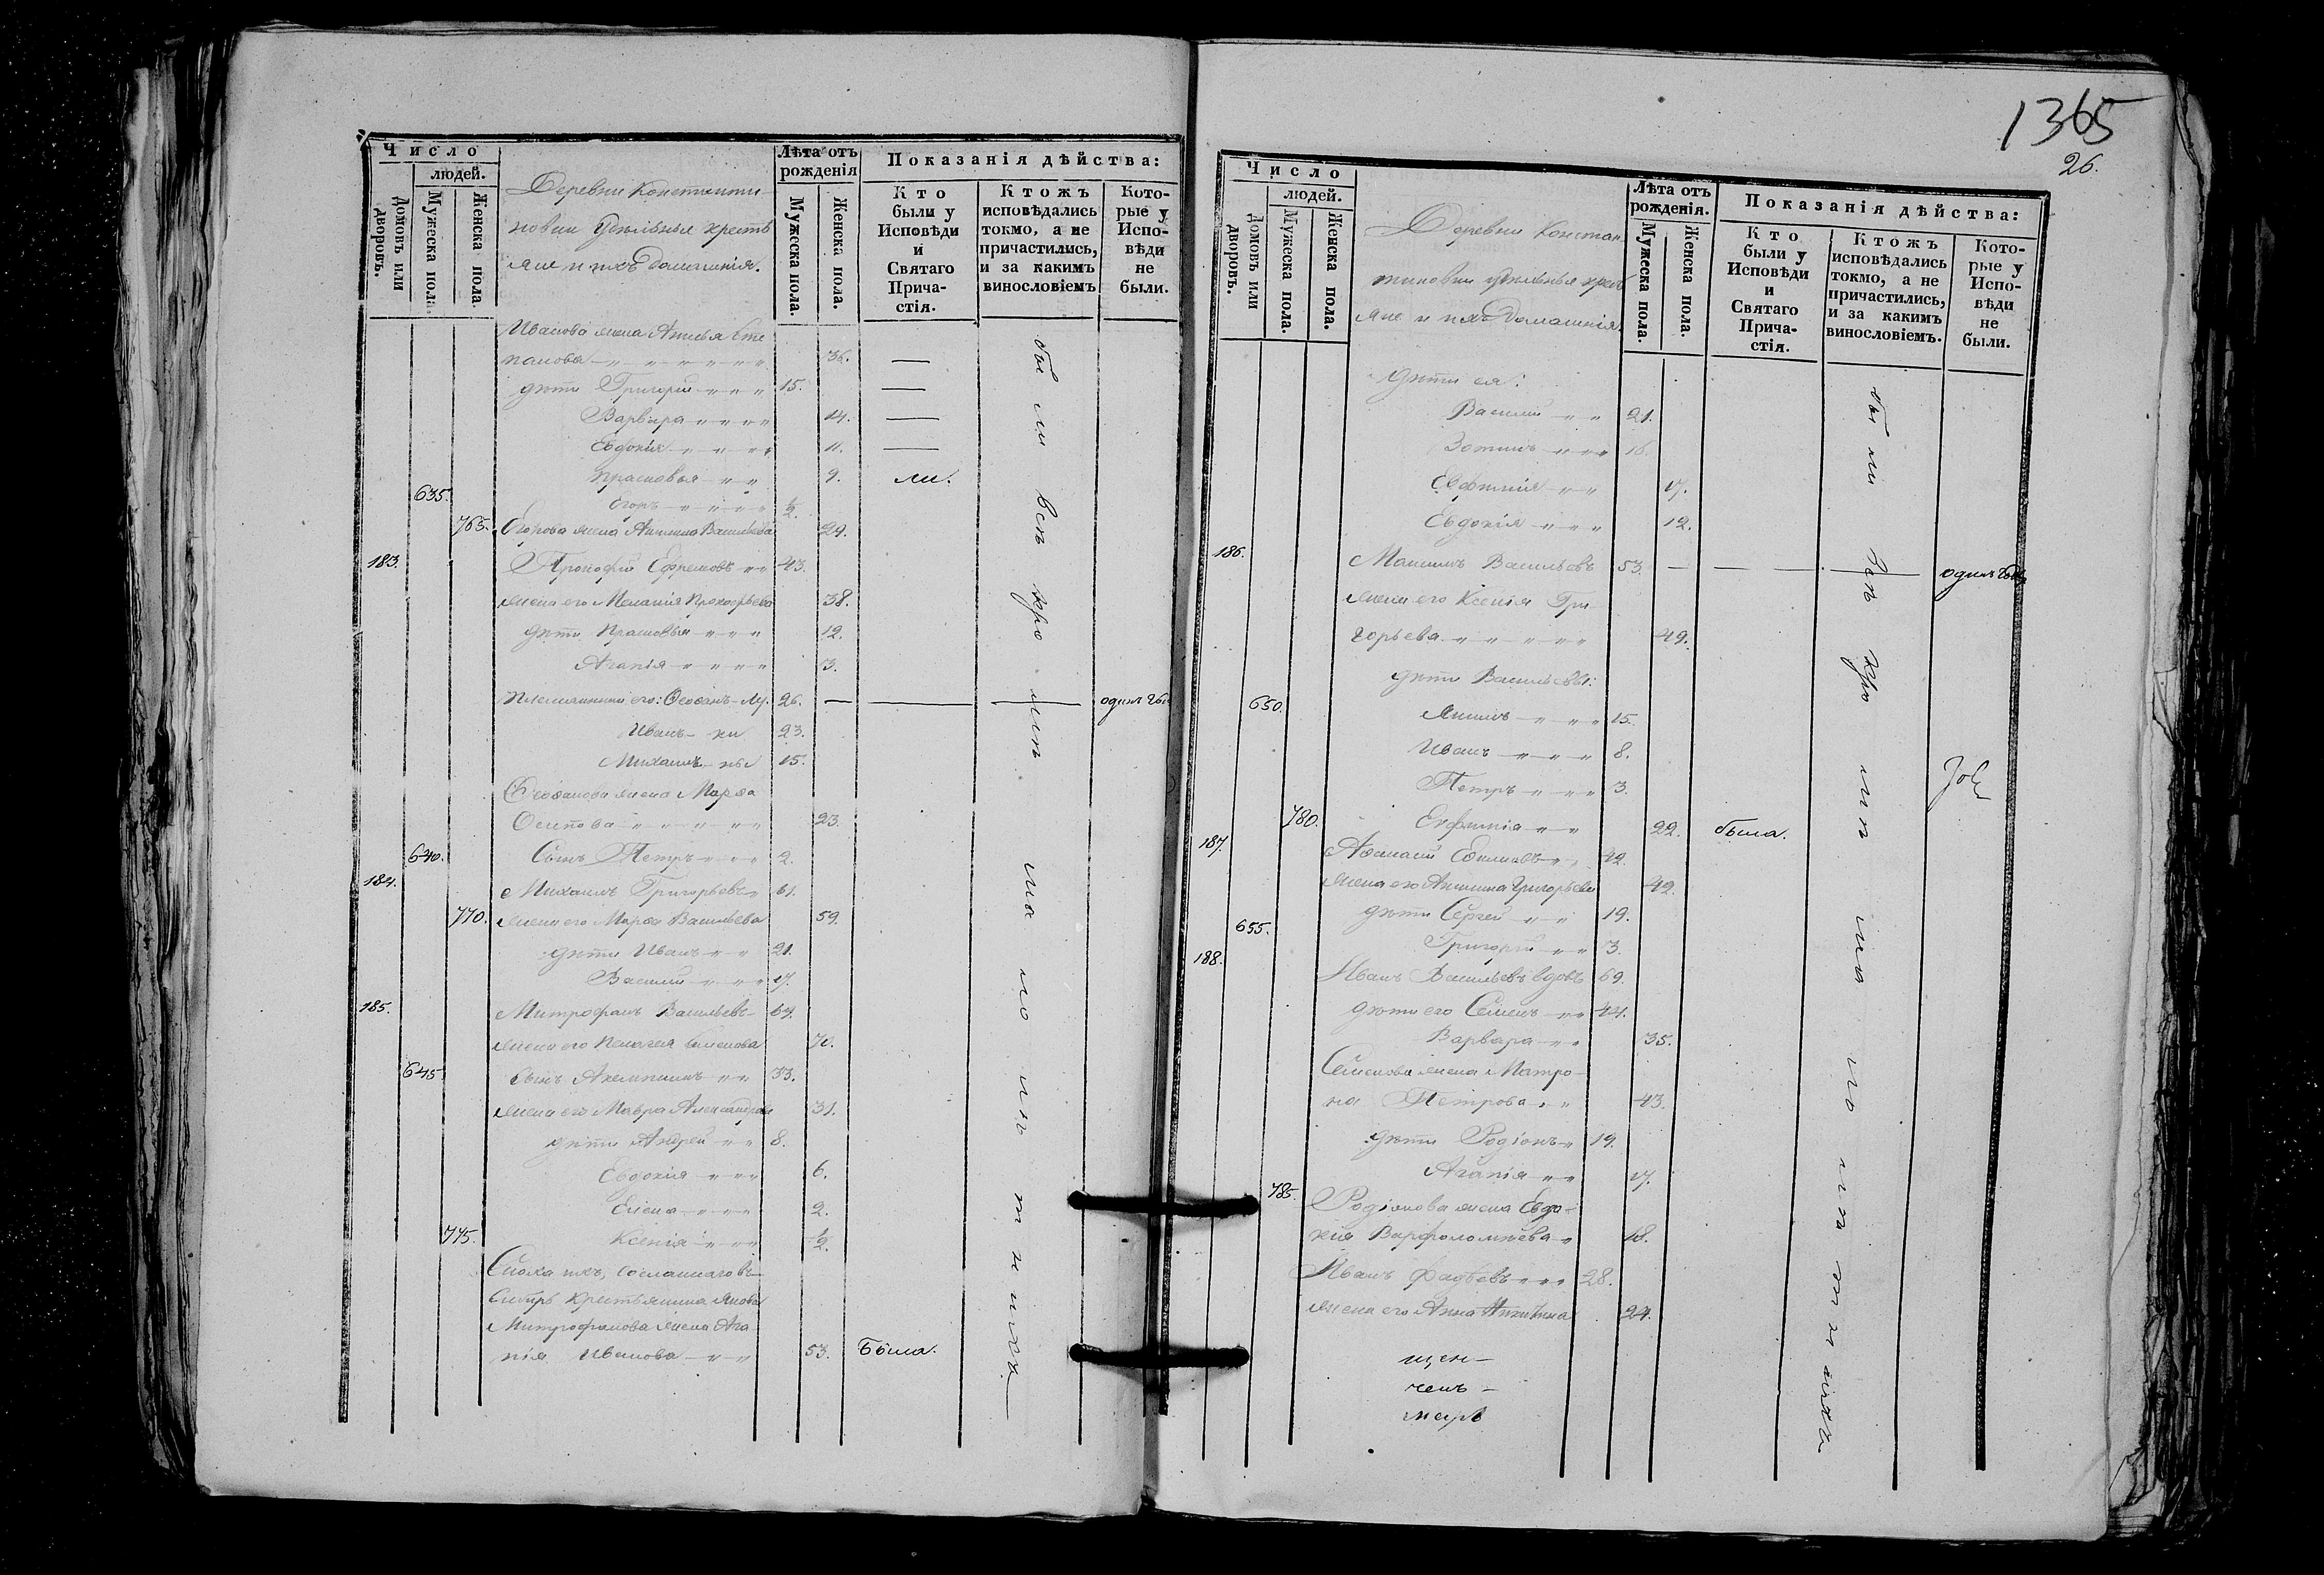 Число
людей.
Домовъ или дворовъ.
Мужеска пола.
Женска пола.
Деревни Константи
новки Удѣльныя кресть
яне и ихъ домашнія.
Лѣта отъ рожденія
Мужеска пола.
Женска пола.
Показанія дѣйства:
Кто были у Исповѣди и Святаго Причастія.
Ктожъ исповѣдались токмо, а не причастились, и за какимъ винословіемъ
Которые у Исповѣди не были.
Иванова жена Сте
панова 36. —
дѣти Григорій 15. —
Варвара 14. —
Евдокія 11. —
Прасковья 9. ли.
635. Егоръ ½.
765. Егорова жена Акилина Васильева 24.
183. Прокофій Ефремовъ 43.
жена его Меланія Прокофьева 38.
дѣти Прасковья 12.
Агапія 3.
племянники его: Ѳеофанъ Лу. 26. — — —
Иванъ ки 23.
Михаилъ ны 15.
Ѳеофанова жена Марѳа
Осипова 23.
640. Сынъ Петръ 2.
184. Михаилъ Григорьевъ 61.
770. жена его Марѳа Васильева 59.
дѣти Иванъ 21.
Василій 17.
185. Митрофанъ Васильевъ 69.
жена его Пелагея Семенова 70.
645. сынъ 33.
жена его Мавра Александрова 31.
дѣти Андрей 8.
Евдокія 6.
Елена 2.
775. Ксенія ½.
Сноха ихъ, сосланнаго въ
Сибирь крестьянина Якова
Митрофанова жена Ага
пія Иванова 53. Была.
1365
26.
Число
людей.
Домовъ или дворовъ.
Мужеска пола.
Женска пола.
Деревни Констан
тиновки удѣльныя крест
яне и ихъ домашнія.
Лѣта отъ рожденія.
Мужеска пола.
Женска пола.
Показанія дѣйства:
Кто были у Исповѣди и Святаго Причастія.
Ктожъ исповѣдались токмо, а не причастились, и за какимъ винословіемъ.
Которые у Исповѣди не были.
дѣти ея:
Василій 21.
Зотикъ 16.
Евфимія 17.
Евдокія 12.
186. Максимъ Васильевъ 53. — — —
жена его Ксенія Гри
горьева 49.
дѣти Васильевы:
650. Якимъ 15.
Иванъ 8.
Петръ 3.
780. Евфимія 22. была.
187. Аѳанасій 42.
жена его Акилина Григорьева 42.
дѣти Сергей 19.
655. Григорій 3.
188. Иванъ Васильевъ вдовъ 69.
дѣти его Семенъ 44.
Варвара 35.
Семенова жена Матро
на Петрова 43.
дѣти Родіонъ 19.
Агапія 17.
785. Родіонова жена Евдо
кія Варфоломѣева 18.
Иванъ Фадѣевъ 28.
жена его Анна Никитина 24.
щен